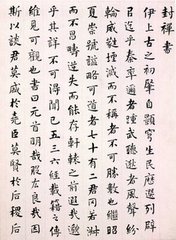 封禪書
伊上古之初肇自顥穹生民歷選列辟
以迄乎秦率邇者踵武逖聽者風聲紛
輪威蕤堙滅而不稱者不可勝數也繼昭
夏崇號諡略可道者七十有二君罔若淑
而不昌疇逆失而能存軒轅之前遐哉邈
乎其詳不可得聞已五三六經載籍之傳
維見可觀也書曰元首明哉股肱良哉因
斯以談君莫盛於堯臣莫賢於后稷后稷